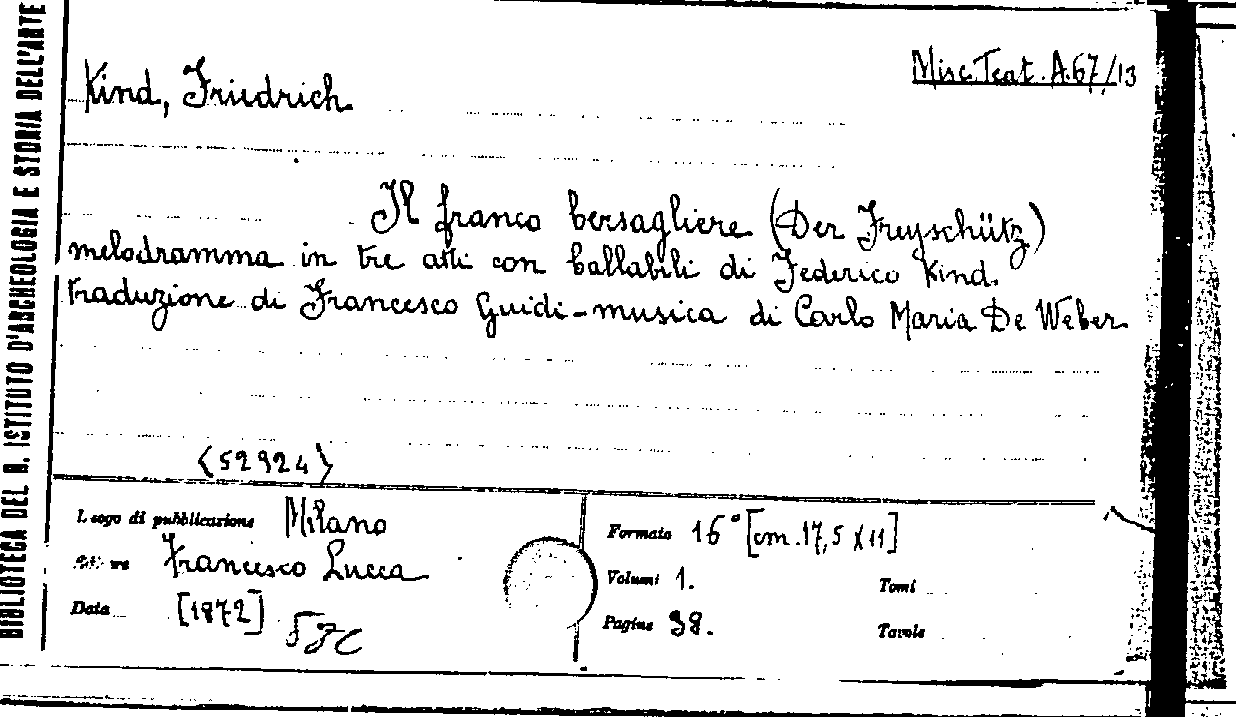 BIBLIOTECA DEL R. ISTITUTO D'ARCHEOLOGIA E STORIA DELL'ARTE
Kind, Friedrich
Misc. Teat. A.67/13
Il franco bersagliere (Der Freyschütz)
melodramma in tre atti con ballabili di Federico Kind.
traduzione di Francesco Guidi - musica di Carlo Maria De Weber
(52924)
Luogo di pubblicazione Milano
Francesco Lucca
Data [1872]
Formato 16° [cm. 17,5 X 11]
Volumi 1.
Tomi
Pagine 38.
Tavole